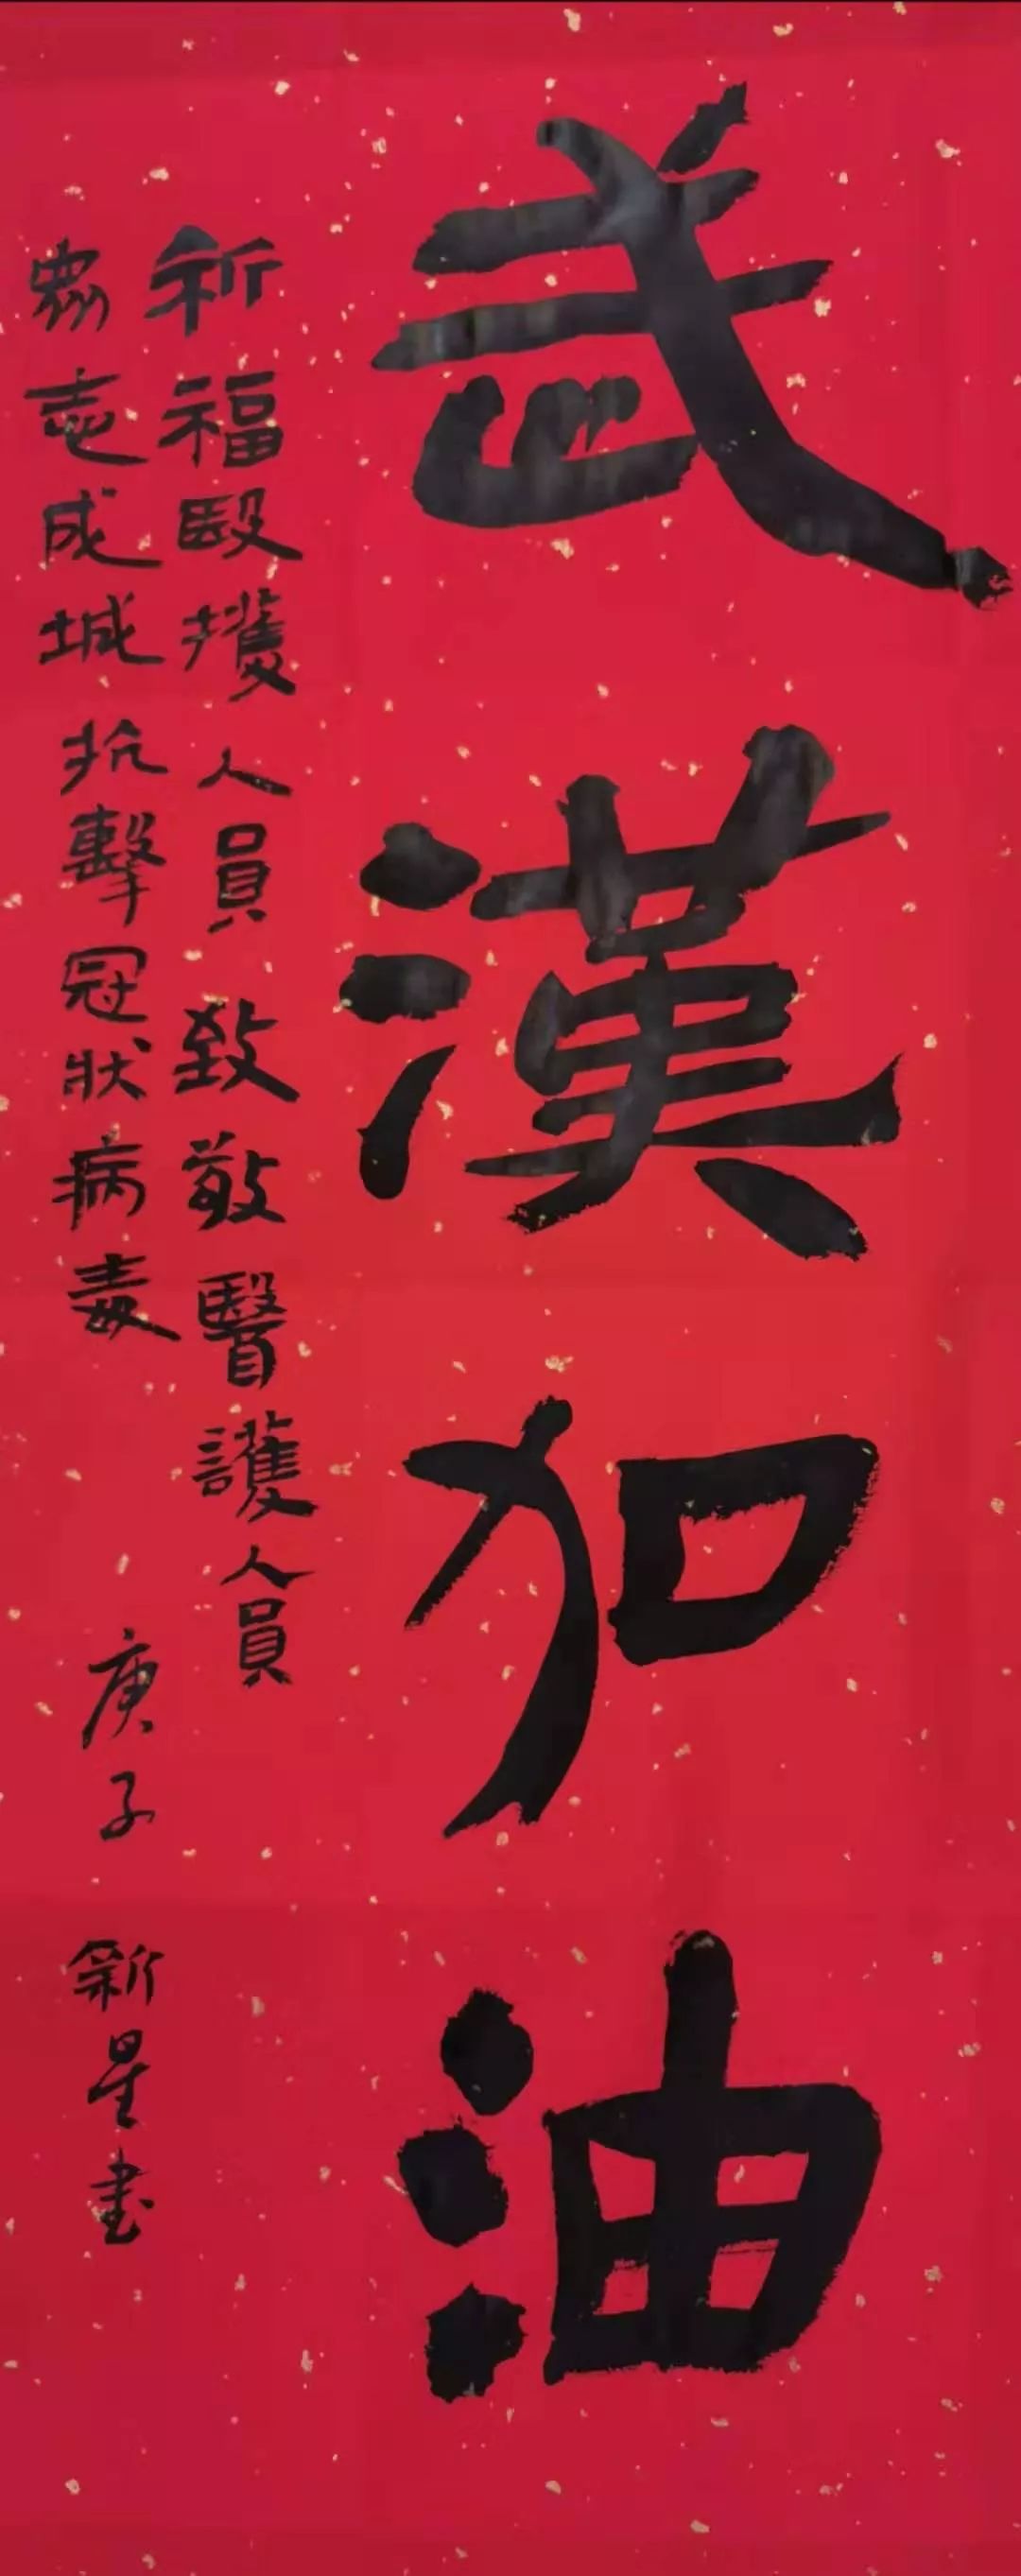 武漢加油
祈福毉擭人員致敬醫護人員
眾志成城抗擊冠狀病毒
庚子
新星书